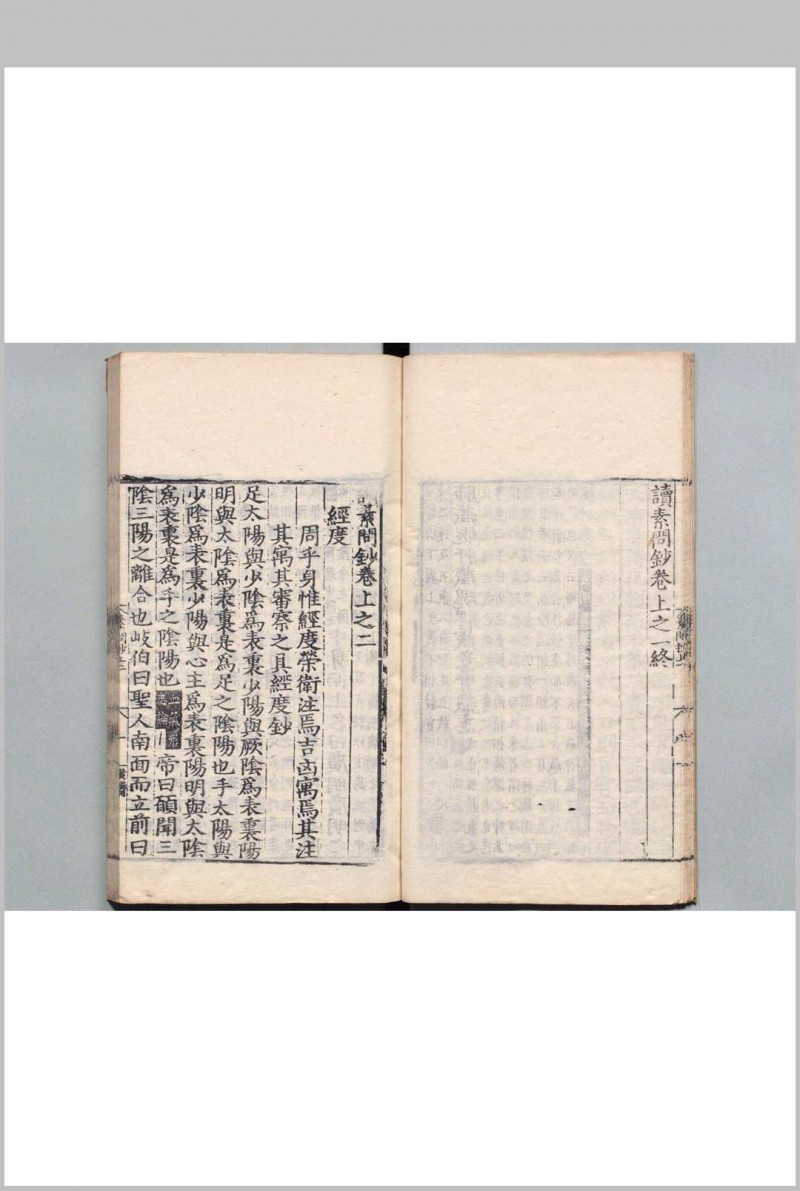 讀素問鈔卷上之一終
素問鈔卷上之二
經度
周乎身惟經度榮衛注焉吉凶寓焉其注
其寓其審察之具經度鈔
足太陽與少陰爲表裏少陽與厥陰爲表裏陽
明與太陰爲表裏是爲足之陰陽也手太陽與
少陰爲表裏少陽與心主爲表裏陽明與太陰
爲表裏是爲手之陰陽也
帝曰願聞三
陰三陽之離合也岐伯曰聖人南面而立前曰